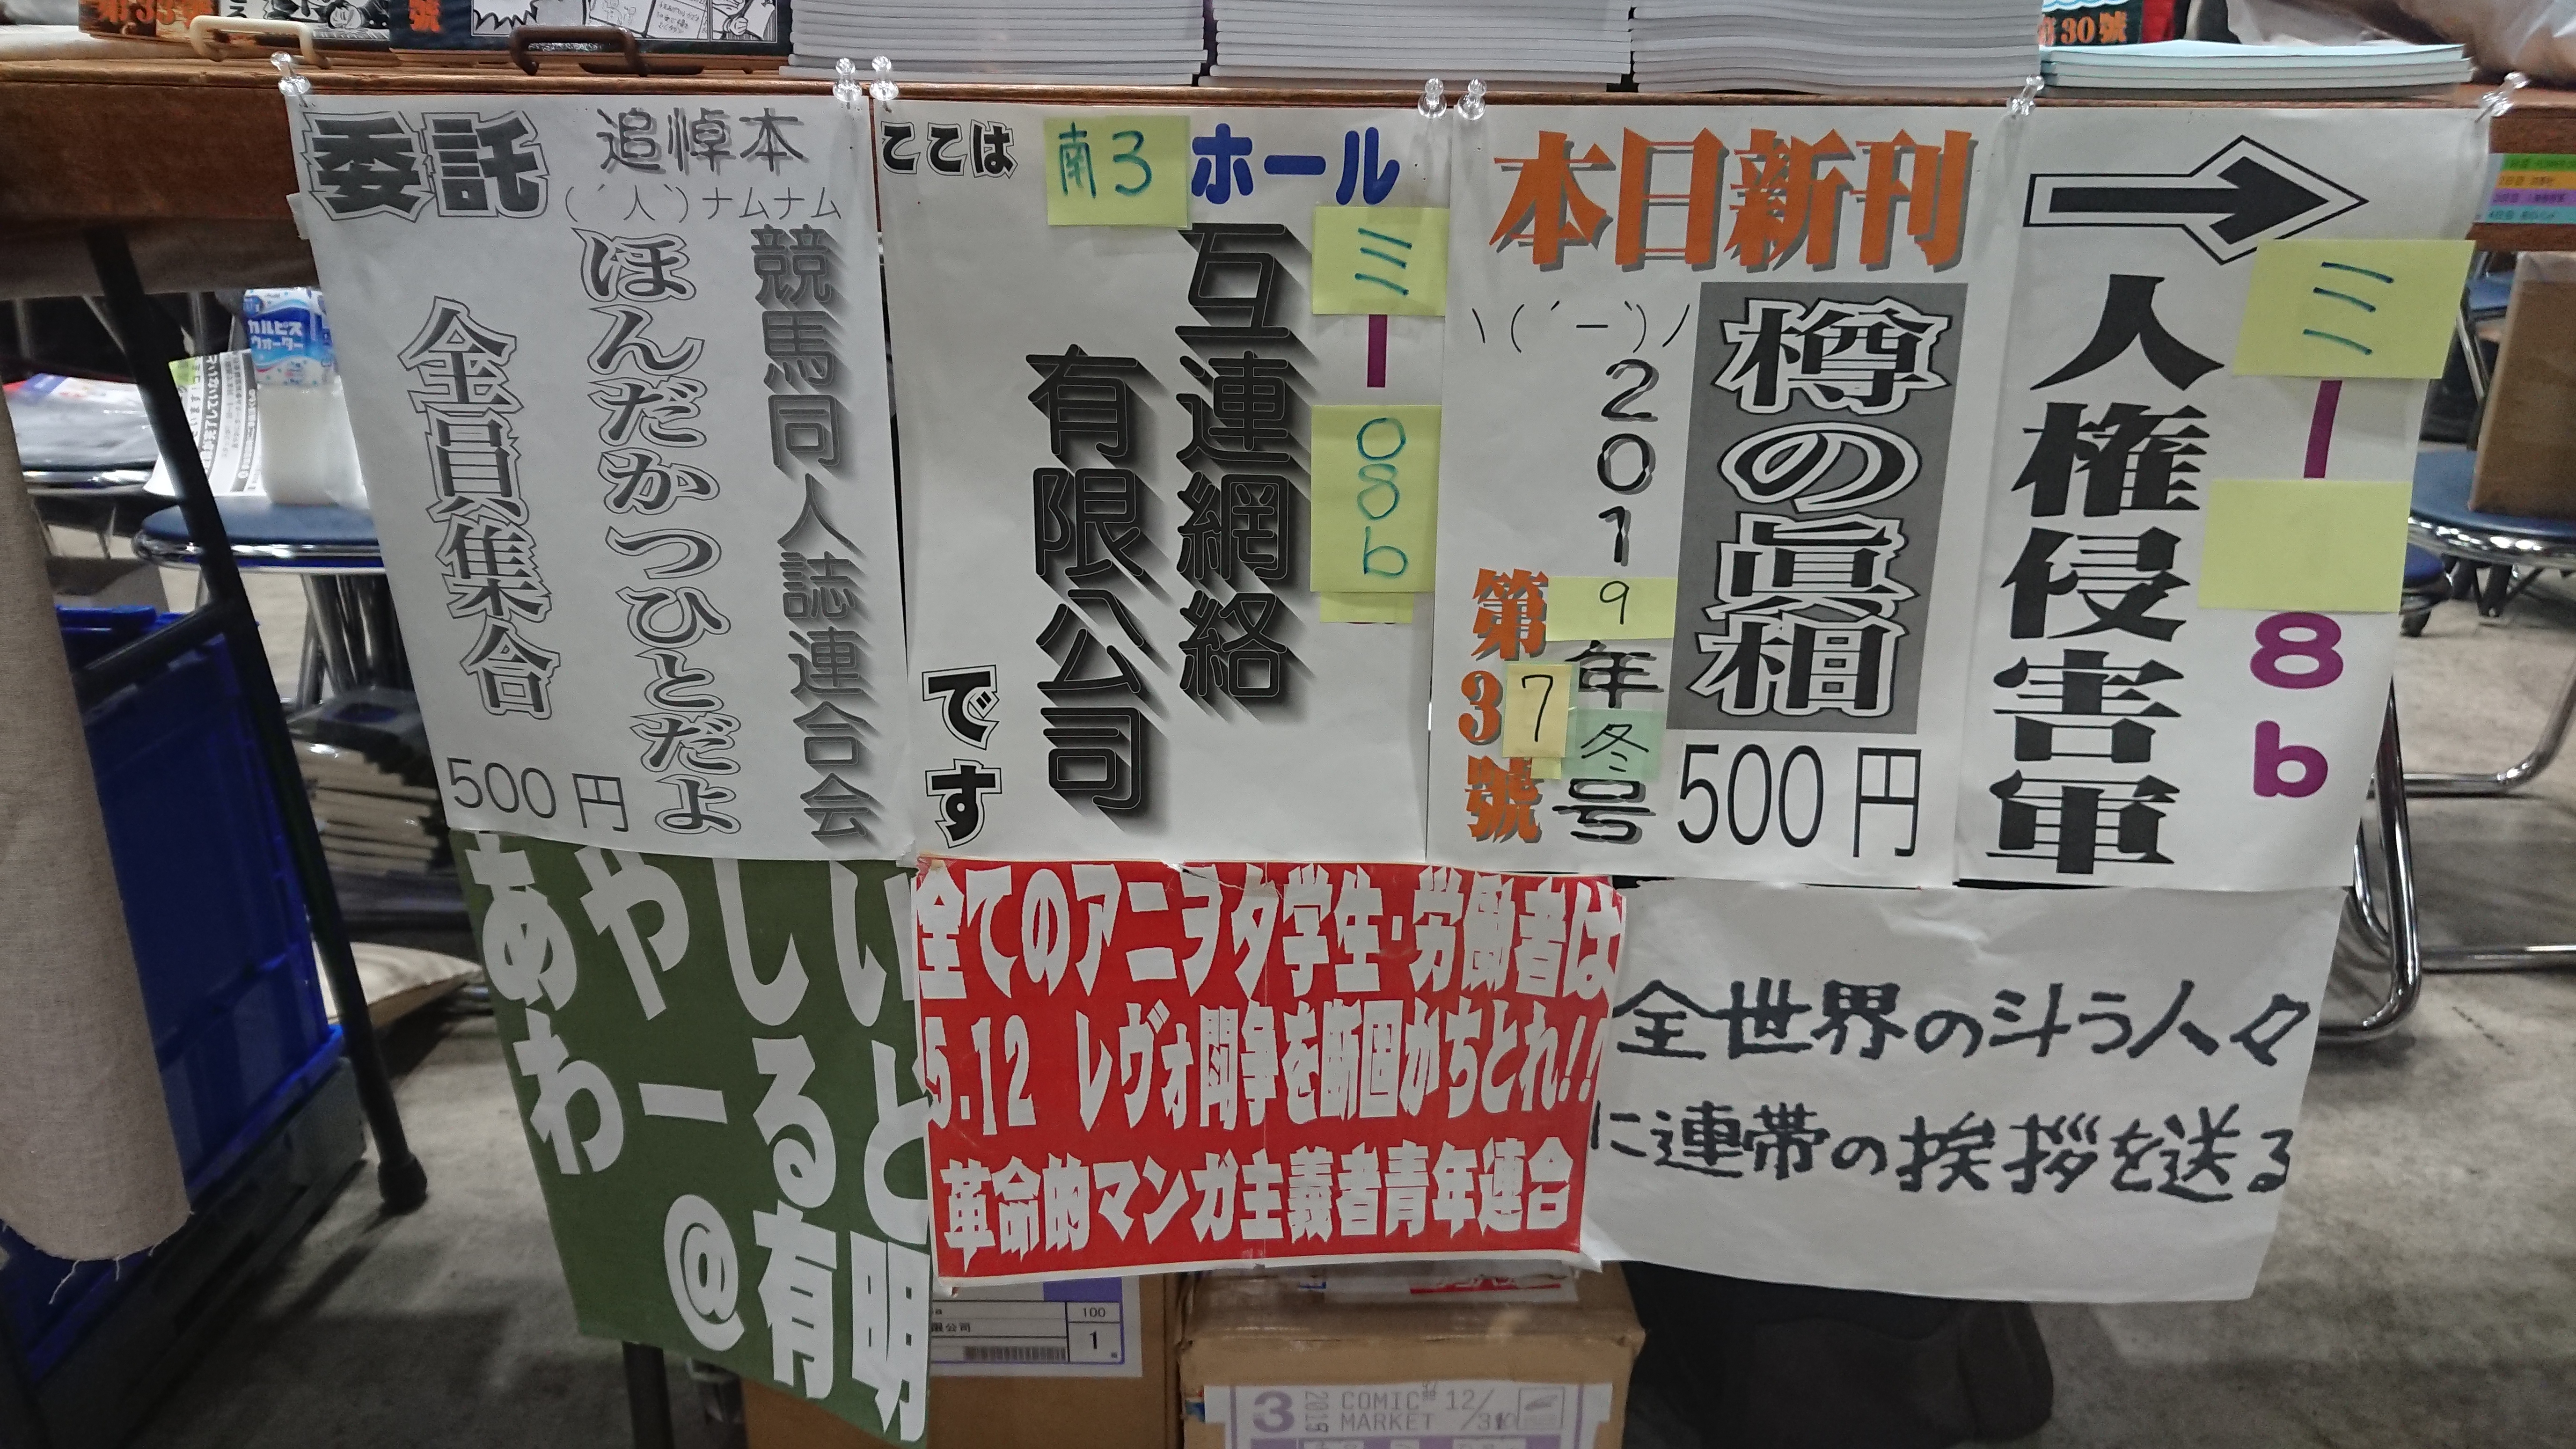 第35號
號
第30號
委託
追悼本
(´人`)ナムナム
競馬同人誌連合会
ほんだかつひとだよ
全員集合
500円
ここは
南3
ホール
ミ
ー
08b
互連網絡
有限公司
です
本日新刊
\(´ー`)/
樽の眞相
2019年冬号
第37號
500円
ミ
ー
8b
人権侵害軍
カルピス
ウォーター
あやしい
わーるど
@有明
全てのアニヲタ学生・労働者は
5.12 レヴォ闘争を断固かちとれ!!
革命的マンガ主義者青年連合
全世界の斗う人々
に連帯の挨拶を送る
100
1
限公司
3
2019
COMIC
MARKET
12/